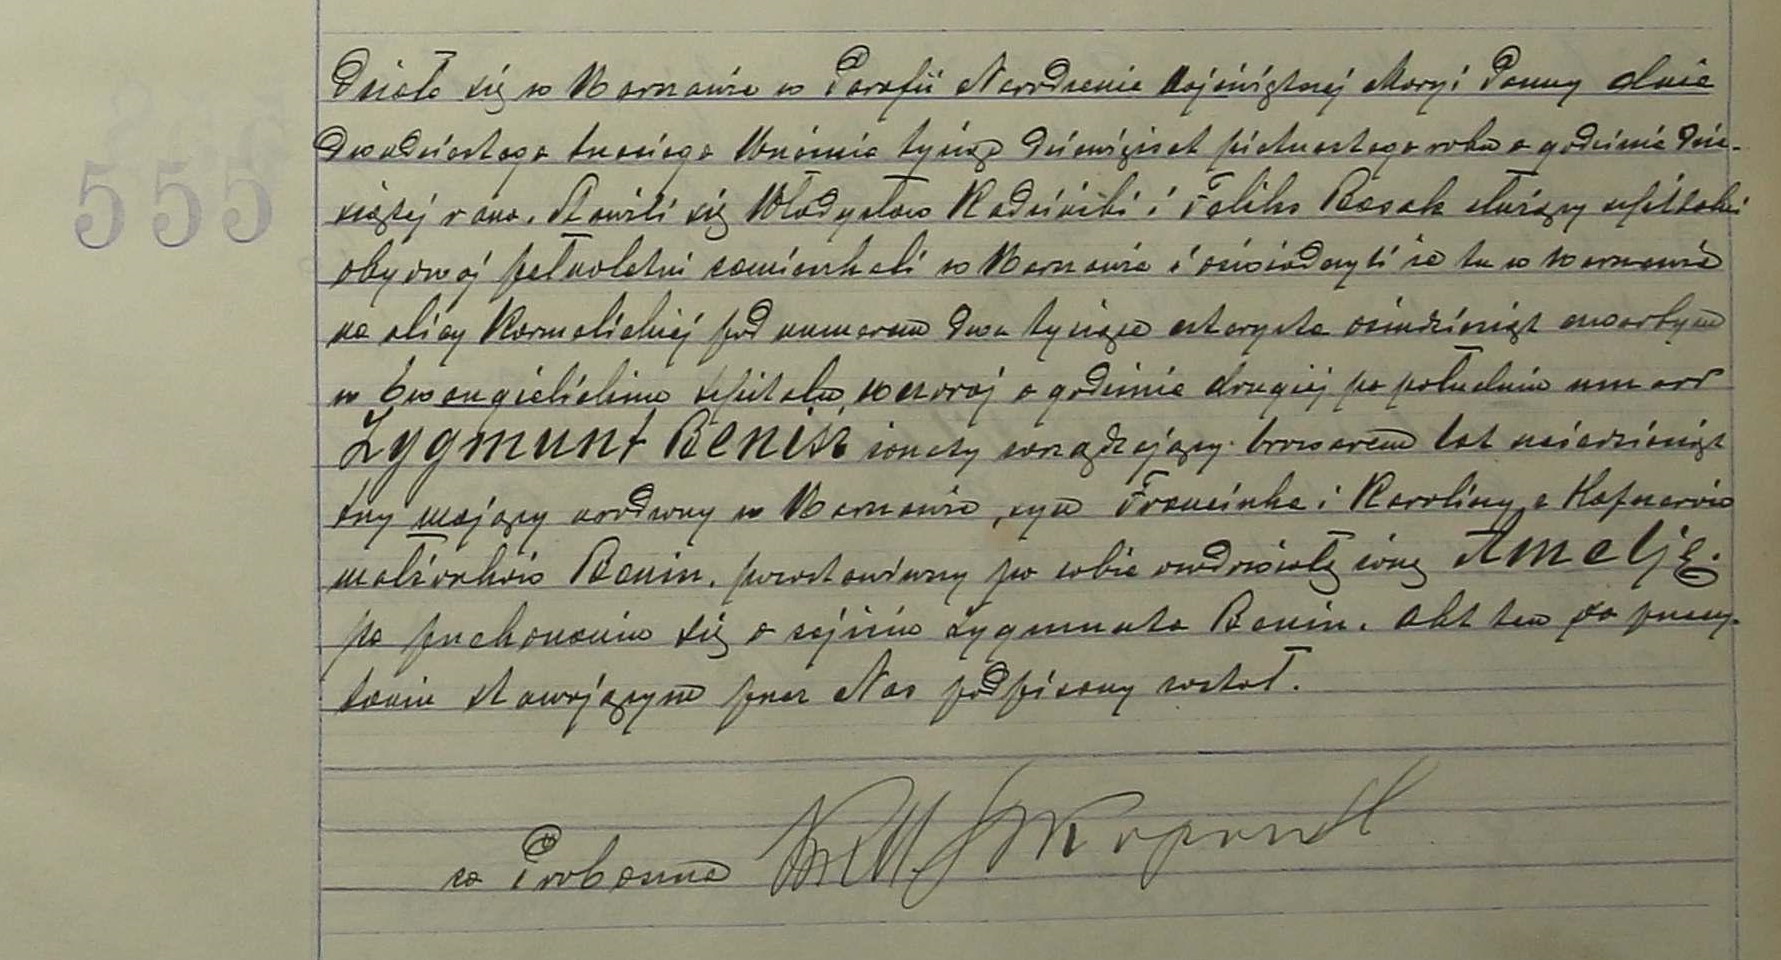 555
Działo się w Warszawie w Parafii Narodzenia Najświętszej Maryi Panny dnia
dwudziestego trzeciego Września tysiąc dziewięćset piętnastego roku o godzinie dzie-
siątej rano. Stawili się Władysław Radziński i Feliks Bosak służący szpitalni
obydwaj pełnoletni zamieszkali w Warszawie i oświadczyli że tu w Warszawie
na ulicy Karmelickiej pod numerem dwa tysiące czterysta osiemdziesiąt czwartym
w Ewangielickim szpitalu, wczoraj o godzinie drugiej po południu umarł
Zygmunt Benisz żonaty zarządzający browarem lat sześćdziesiąt
trzy mający urodzony w Warszawie, syn Franciszka i Karoliny z Hafnerów
małżonków Benisz, pozostawiwszy po sobie owdowiałą żonę Amelję.
po przekonaniu się o zejściu Zygmunta Benisz. Akt ten po przeczy-
taniu stawającym przez Nas podpisany został.
za Proboszcza